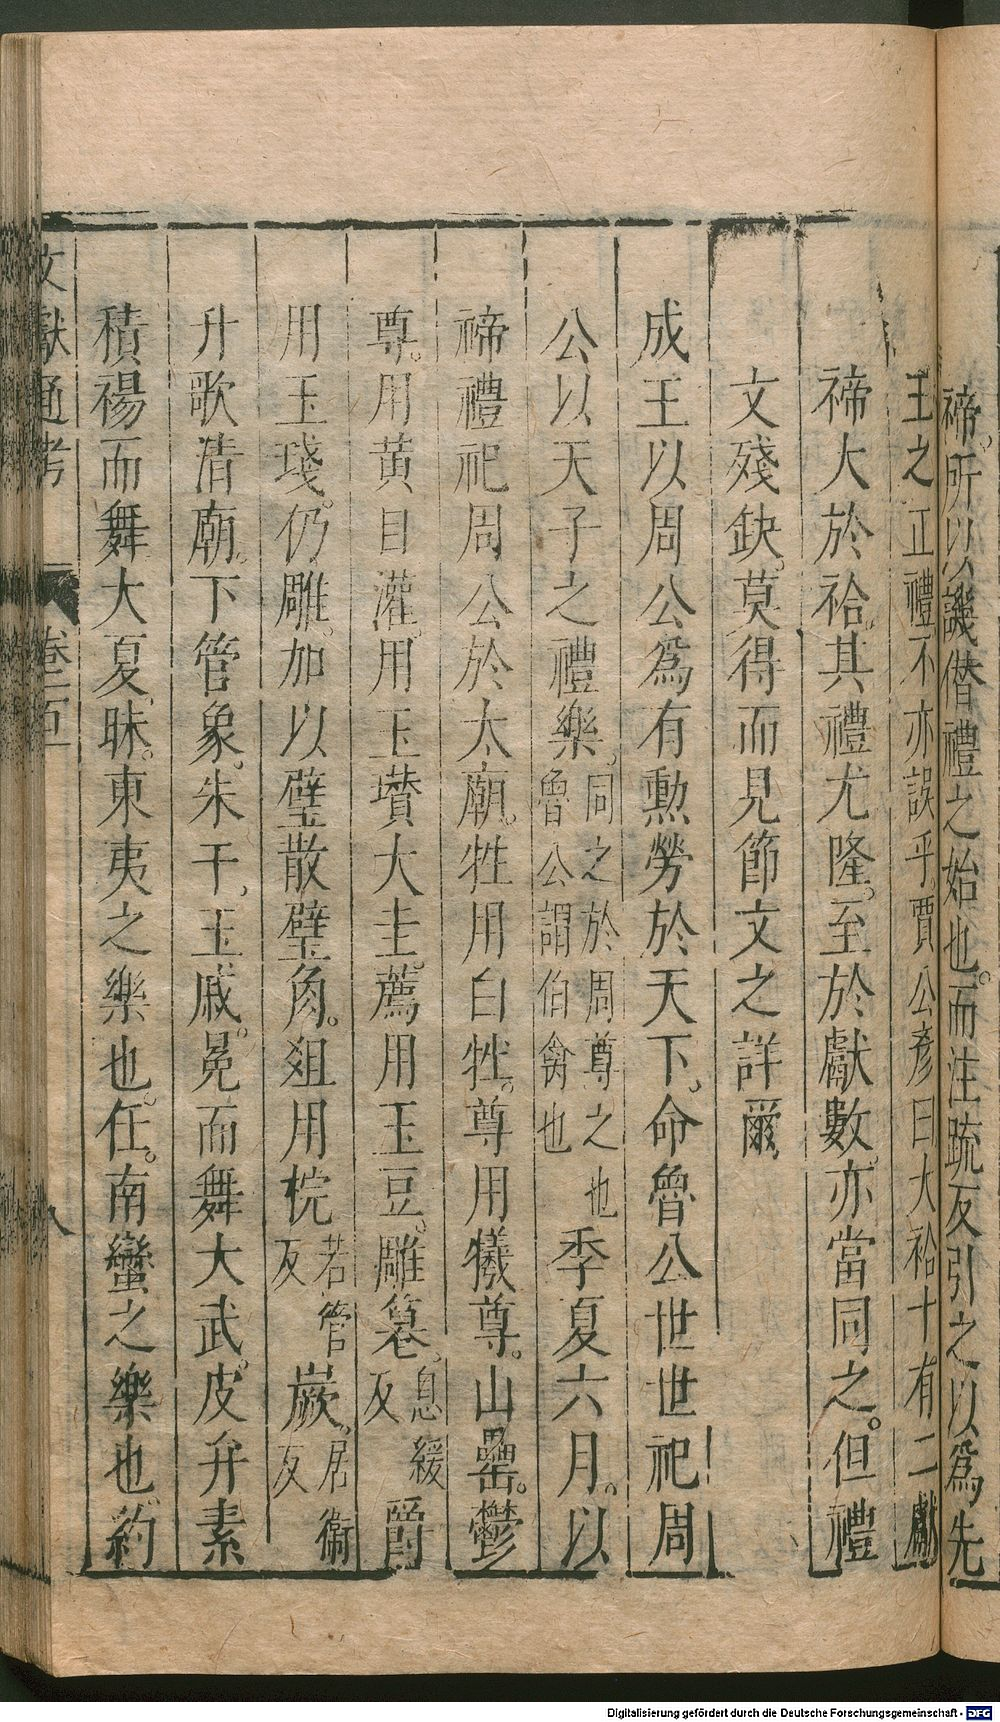 禘。所以譏僭禮之始也。而注疏反引之以爲先
王之正禮不亦誤乎。賈公彥曰大祫十有二獻
禘大於祫。其禮尤隆。至於獻數。亦當同之。但禮
文殘缺。莫得而見節文之詳爾。
成王以周公爲有勳勞於天下。命魯公世世祀周
公以天子之禮樂。同之於周尊之也魯公謂伯禽也季夏六月。以
禘禮祀周公於太廟。牲用白牡。尊用犧尊。山罍。鬱
尊。用黃目灌。用玉瓚大圭。薦用玉豆。雕篹。息緩反爵
用玉琖。仍雕。加以璧散璧角。俎用梡若管反嶡。居衞反
升歌清廟。下管象。朱干。玉戚。冕而舞大武。皮弁素
積裼而舞大夏。昧。東夷之樂也。任。南蠻之樂也。約
文獻通考 卷一百 八
Digitalisierung gefördert durch die Deutsche Forschungsgemeinschaft - DFG